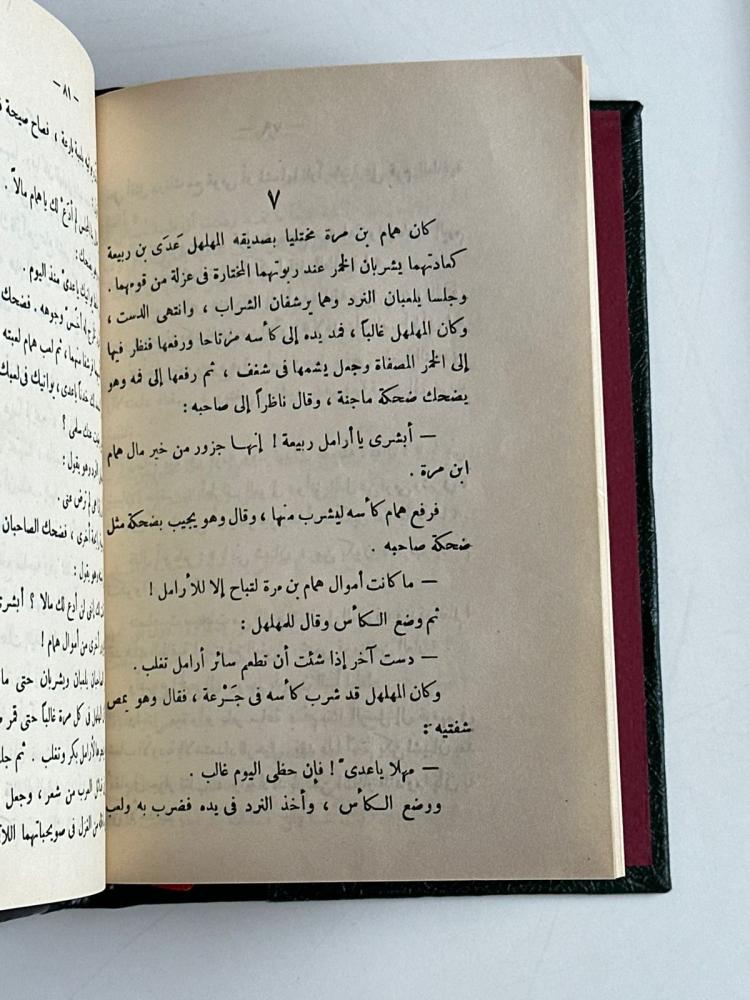 ٧
كان همام بن مرة مختليا بصديقه المهلهل عَدَى بن ربيعة
كعادتهما يشربان الخمر عند ربوتهما المختارة فى عزلة من قومهما .
وجلسا يلعبان النرد وهما يرشفان الشراب ، وانتهى الدست ،
وكان المهلهل غالباً ، فمد يده إلى كأسه مرتاحا ورفعها فنظر فيها
إلى الخمر المصفاة وجعل يشمها فى شغف ، ثم رفعها إلى فمه وهو
يضحك ضحكة ماجنة ، وقال ناظراً إلى صاحبه :
— أبشرى يا أرامل ربيعة ! إنهـا جزور من خير مال همام
ابن مرة .
فرفع همام كأسه ليشرب منها ، وقال وهو يجيب بضحكة مثل
ضحكة صاحبه .
— ما كانت أموال همام بن مرة لتباح إلا للأرامل !
ثم وضع الـكأس وقال للمهلهل :
— دست آخر إذا شئت أن تطعم سائر أرامل تغلب .
وكان المهلهل قد شرب كأسه فى جَـرْعة ، فقال وهو يمص
شفتيه :
— مهلا ياعدىّ ! فإن حظى اليوم غالب .
ووضع الـكأس ، وأخذ النرد فى يده فضرب به ولعب
— ٨١ —
بارعة ، فصاح صيحة
لم أدَع لك ياهمام مالاً .
ياعدىّ منذ اليوم .
وجوهه . فضحك
ثم لعب همام لعبته
ياعدى ، يواتيك فى لعبك
سلمى ؟
وهو يقول :
لم ترض عنى .
أخرى ، فضحك الصاحبان
وهو يقول :
إنى لن أدع لك مالا ؟ أبشرى
أخرى من أموال همام !
يلعبان ويشربان حتى ما
فى كل مرة غالباً حتى قمر
الأرامل بكر وتغلب . ثم
العرب من شعر ، وجعل
من الغزل فى صويحباتهما